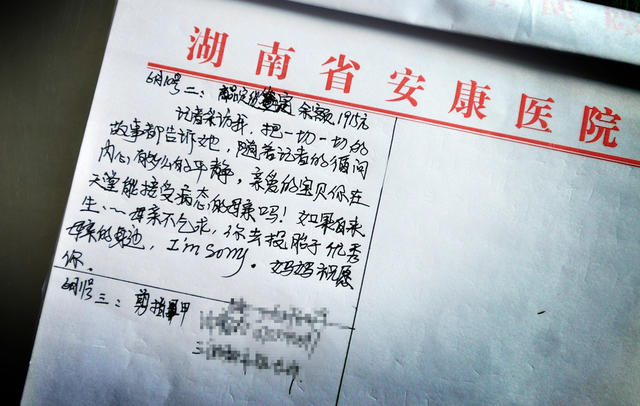 湖南省安康医院
6月10号二: 余额1915元
记者采访我,把一切一切的
故事都告诉她,随着记者的循问
内心的平静,亲爱的宝贝你在
天堂能接受病态的母亲吗!如果有来
生、、母亲不乞求,你去投胎于优秀
母亲的身边,I'm sorry。妈妈祝愿
你.
6月11号三: 剪指甲